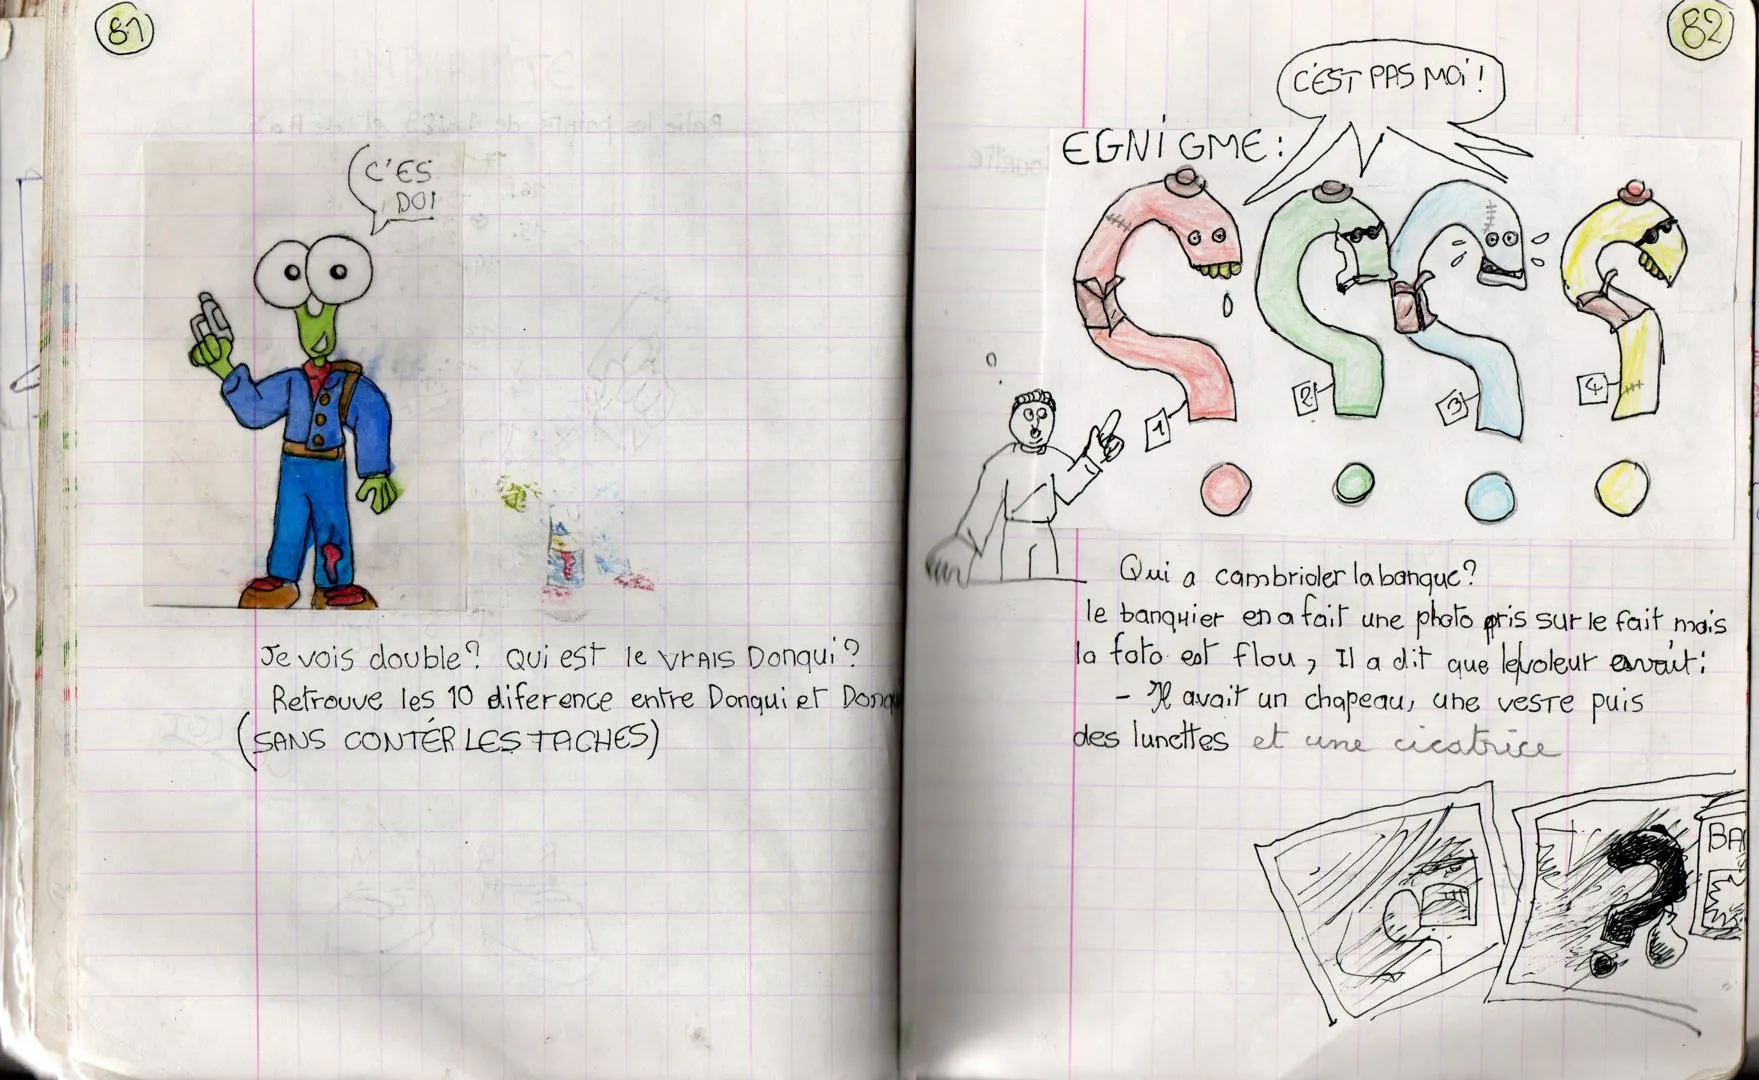 81
C'ES
DOI
Je vois double? Qui est le vrais Donqui?
Retrouve les 10 diference entre Donqui et Donqui
(SANS CONTÉR LES TACHES)
82
C'EST PAS MOi!
EGNiGME:
1
2
3
4
Qui a cambrioler la banque?
le banquier en a fait une photo pris sur le fait mais
la foto est flou, Il a dit que le voleur avait:
- Il avait un chapeau, une veste puis
des lunettes et une cicatrice
BA